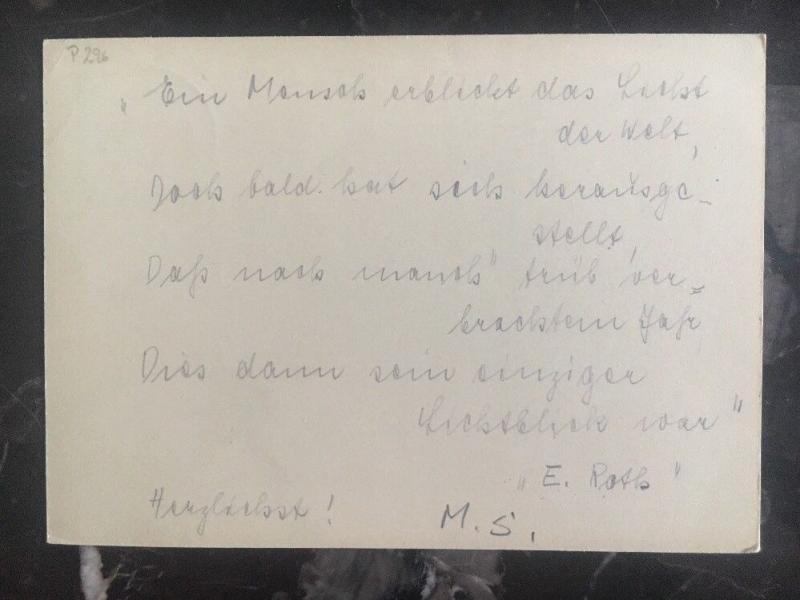 P 296
„Ein Mensch erblickt das Licht
der Welt,
Doch bald hat sich herausge-
stellt,
Daß nach manch' trüb ver=
brachtem Jahr
Dies dann sein einziger
Lichtblick war"
„E. Roth"
Herzlichst!
M. S.